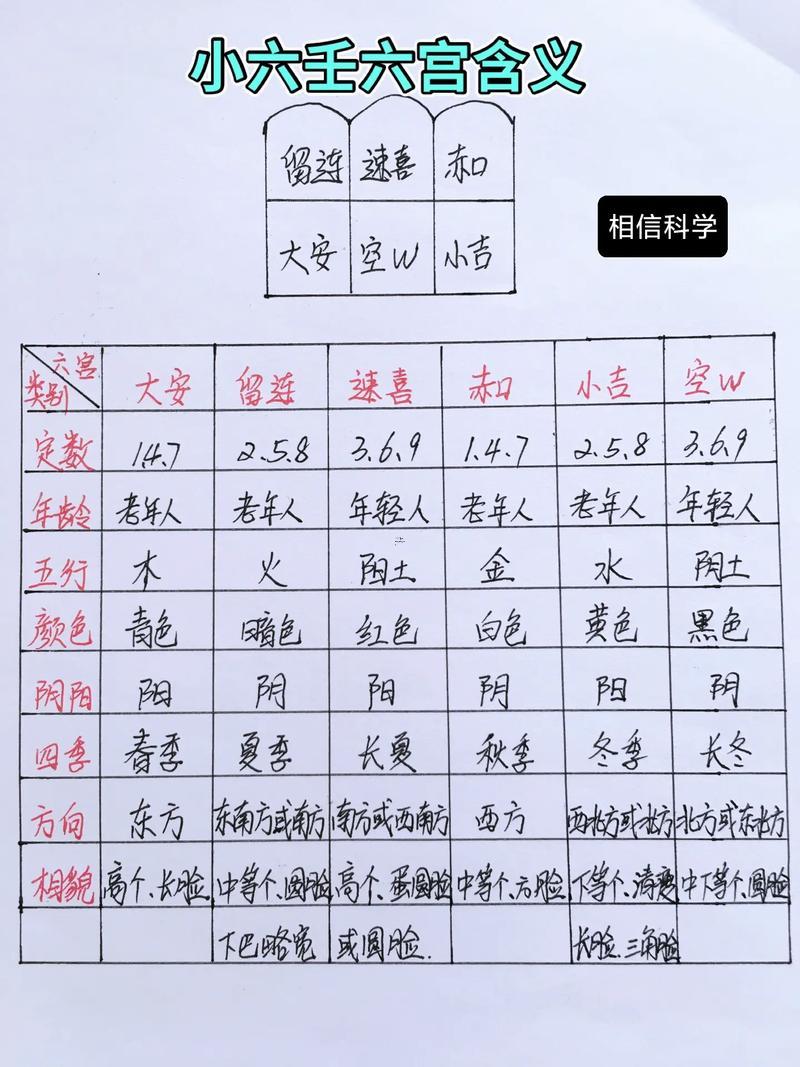 小六壬六宫含义
留连 速喜 赤口
相信科学
大安 空W 小吉
六宫
类别 大安 留连 速喜 赤口 小吉 空W
定数 1.4.7 2.5.8 3.6.9 1.4.7 2.5.8 3.6.9
年龄 老年人 老年人 年轻人 老年人 老年人 年轻人
五行 木 火 阳土 金 水 阴土
颜色 青色 暗色 红色 白色 黄色 黑色
阴阳 阳 阴 阳 阴 阳 阴
四季 春季 夏季 长夏 秋季 冬季 长冬
方向 东方 东南方或南方 南方或西南方 西方 西北方或北方 北方或东北方
相貌 高个、长脸 中等个、圆脸 高个、蛋圆脸 中等个、方脸 下等个、清瘦 中下等个、圆脸
下巴略宽 或圆脸. 长脸.三角脸